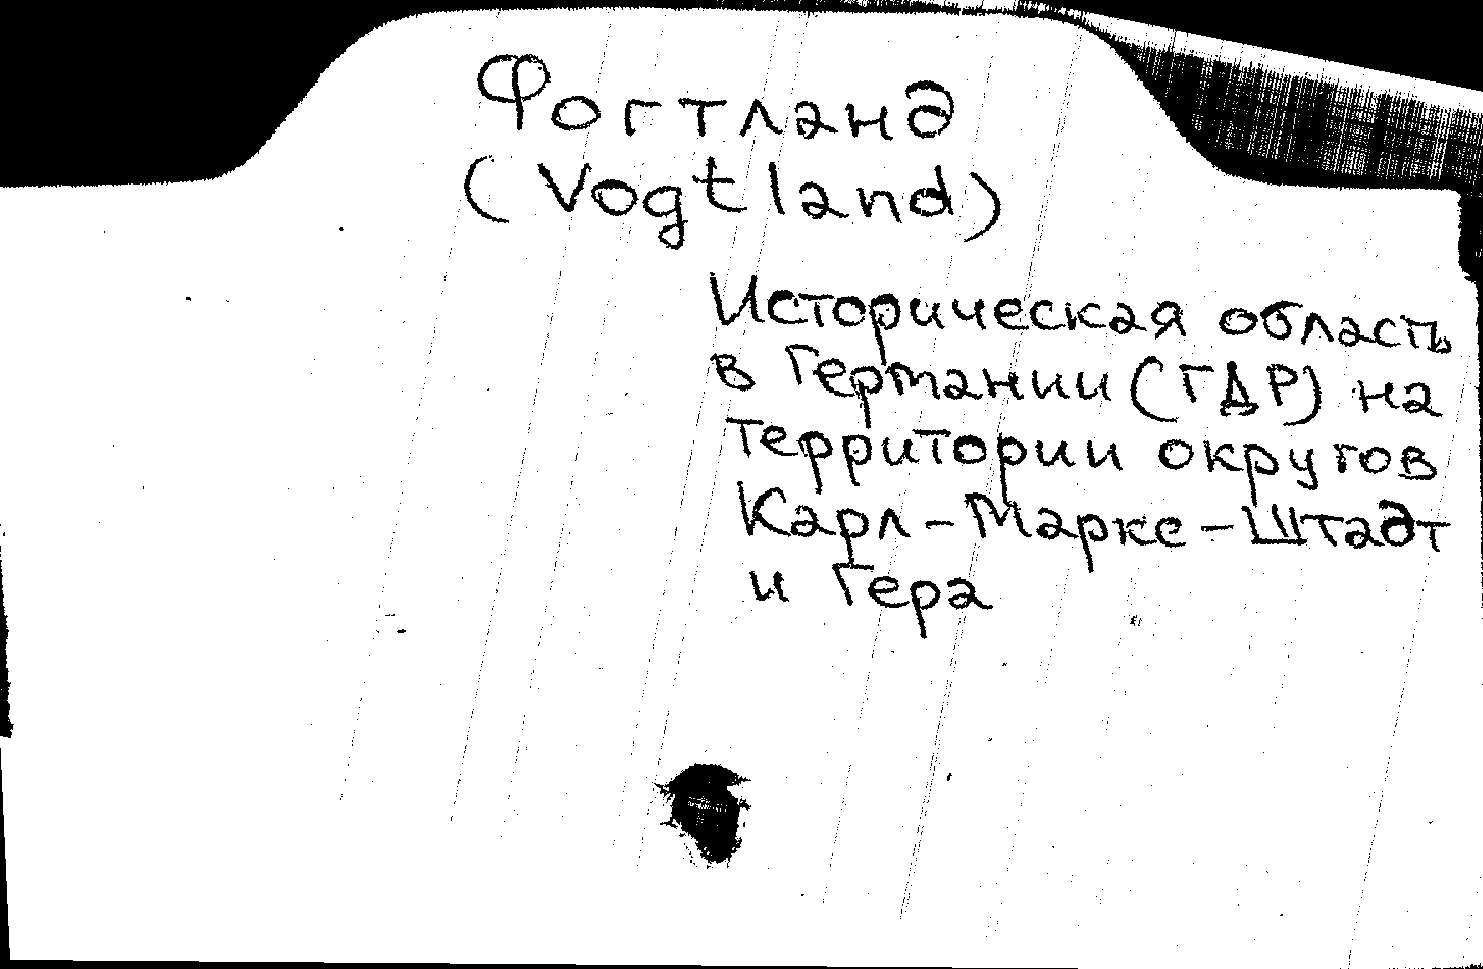 Фогтланд
(Vogtland)
Историческая область
в Германии (ГДР) на
территории округов
Карл-Маркс-Штадт
и Гера